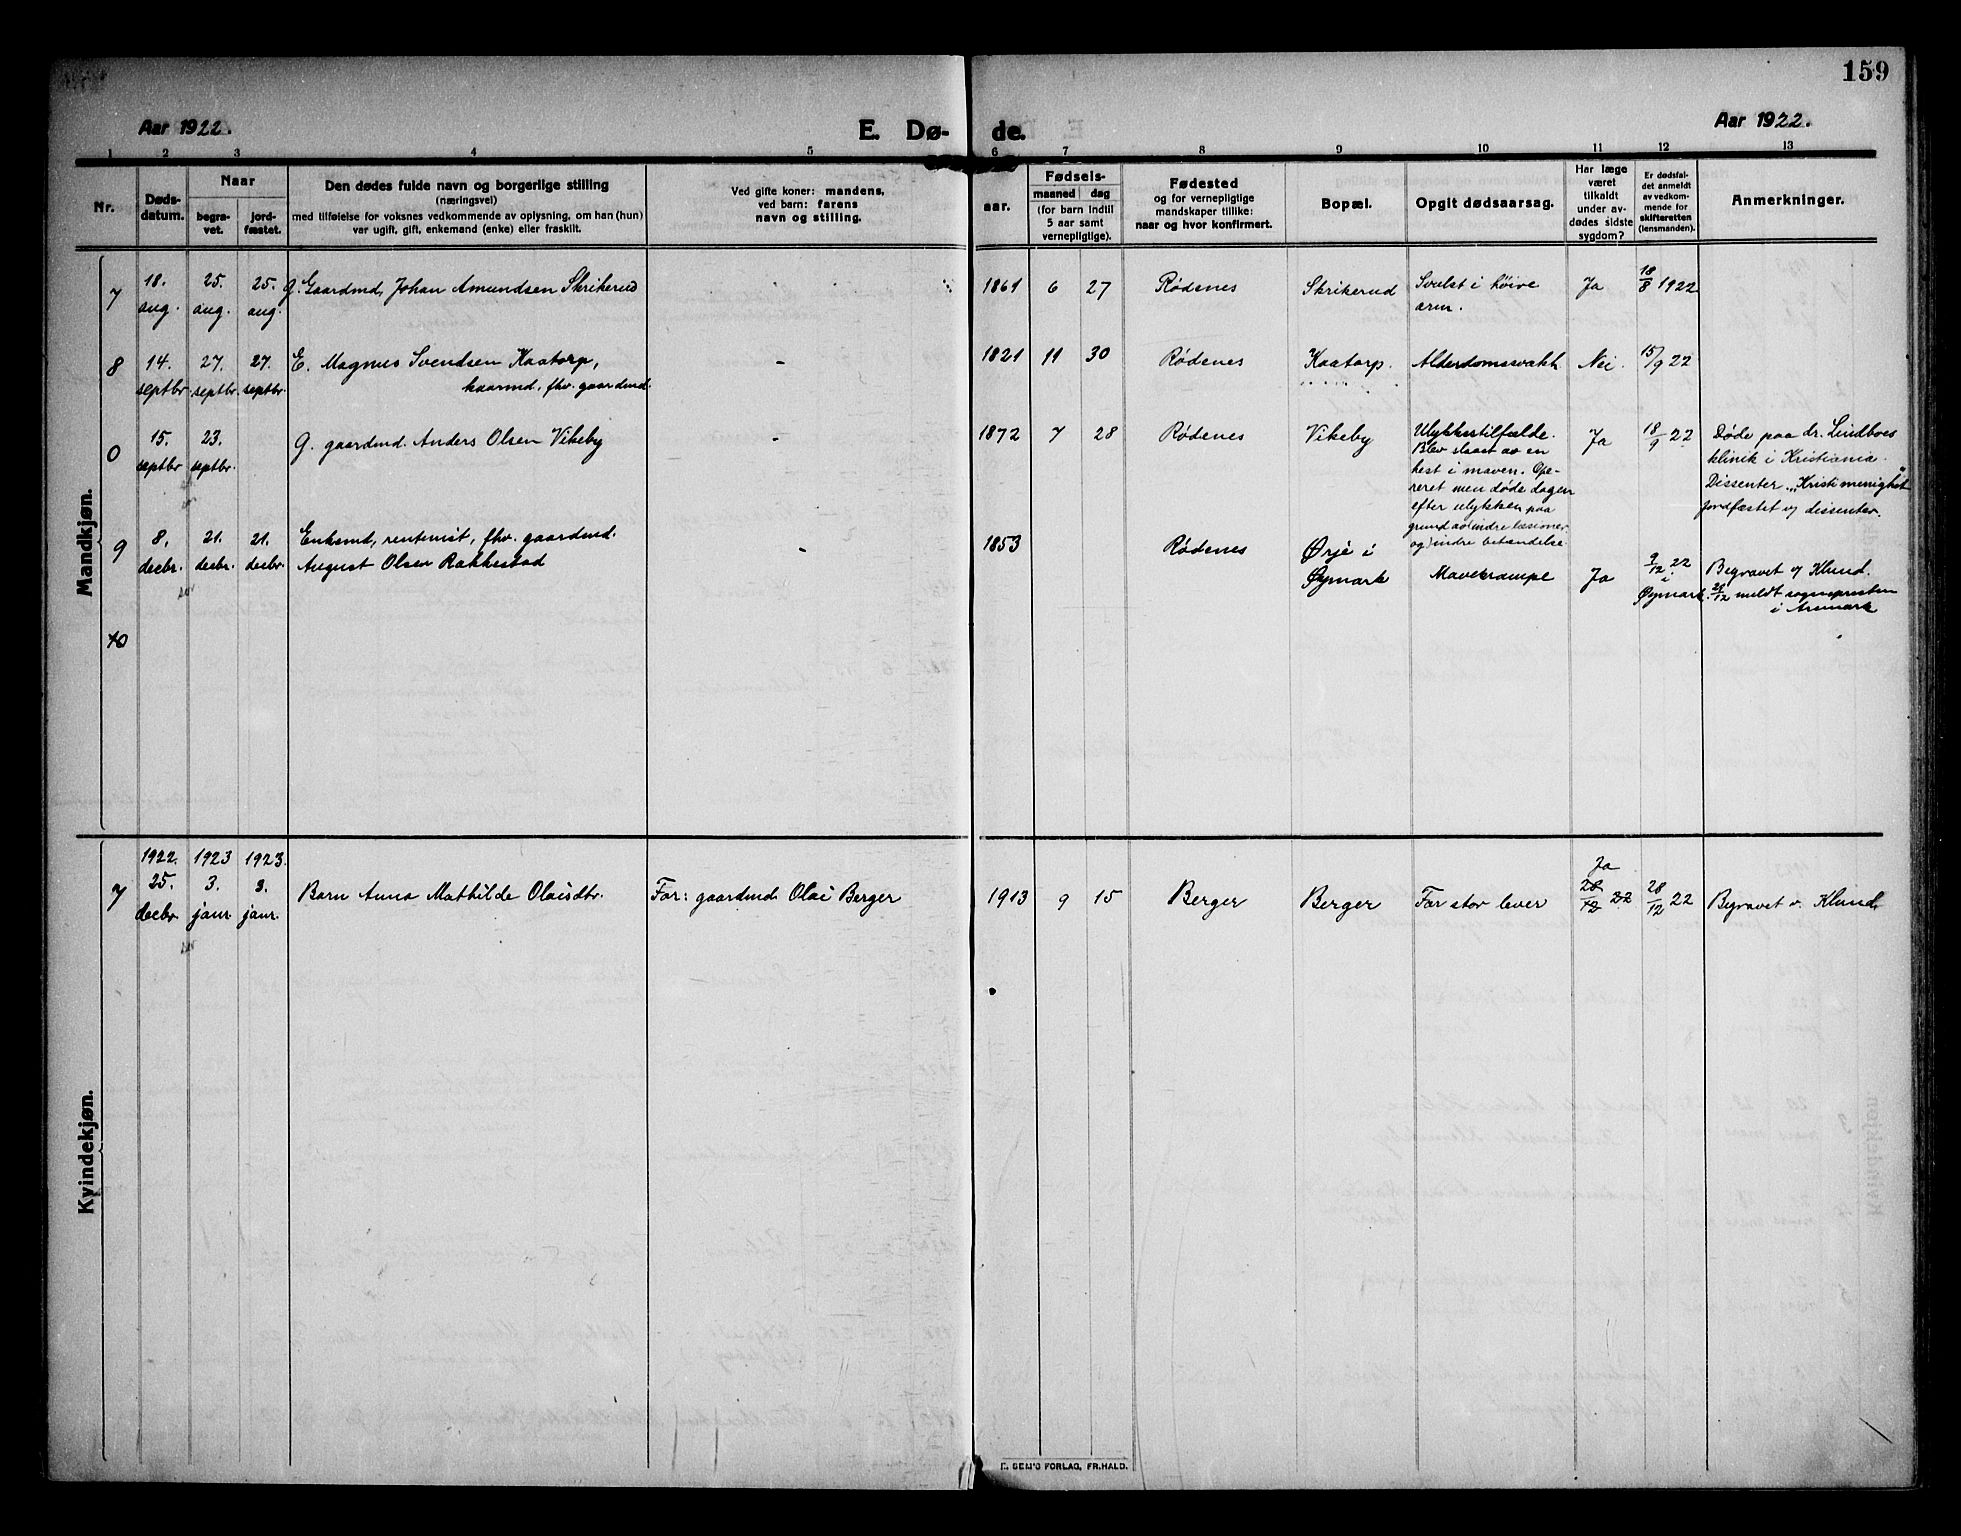 159
Aar 1922.
E. Dø- de.
Aar 1922.
1 2 3 4 5 6 7 8 9 10 11 12 13
Nr.
Døds-
datum.
Naar
begra-
vet.
jord-
fæstet.
Den dødes fulde navn og borgerlige stilling
(næringsvei)
med tilføielse for voksnes vedkommende av oplysning, om han (hun)
var ugift, gift, enkemand (enke) eller fraskilt.
Ved gifte koner: mandens,
ved barn: farens
navn og stilling.
aar.
Fødsels-
maaned dag
(for barn indtil
5 aar samt
vernepligtige).
Fødested
og for vernepligtige
mandskaper tillike:
naar og hvor konfirmert.
Bopæl.
Opgit dødsaarsag.
Har læge
været
tilkaldt
under av-
dødes sidste
sygdom?
Er dødsfal-
det anmeldt
av vedkom-
mende for
skifteretten
(lensmanden).
Anmerkninger.
Mandkjøn.
7
18.
aug.
25.
aug.
25.
aug.
g. Gaardmd. Johan Amundsen Skrikerud
1861 6 27 Rødenes Skrikerud
Svulst i høire
arm.
Ja
18/8 1922
8
14.
septbr
27.
septbr.
27.
septbr.
E. Magnus Svendsen Kaatorp,
kaarmd, fhv. gaardmd.
-
1821 11 30 Rødenes Kaatorp. Alderdomssvakh Nei. 15/9 22
0
15.
septbr
23.
septbr.
G. gaardmd. Anders Olsen Vikeby
-
1872 7 28 Rødenes Vikeby
Ulykkestilfælde.
Blev slaat av en
hest i maven. Ope-
reret men døde dagen
efter ulykken paa
grund av indre læsioner
og indre betændelse.
Ja
18/9 22
Døde paa dr. Lindboes
klinik i Kristiania.
Dissenter. "Kristi menighet"
jordfæstet v dissenter.
9
8.
decbr.
21.
decbr.
21.
decbr.
Enkemd, rentenist, fhv. gaardmd.
August Olsen Rakkestad
-
1853 Rødenes
Ørje i
Øymark
Mavekrampe
Ja
9/12 22
i
Øymark.
Begravet v Klund.
21/12 meldt sognepresten
i Aremark
10
Kvindekjøn.
7
1922.
25.
decbr.
1923
3.
janr.
1923.
3.
janr.
Barn Anna Mathilde Olaisdtr.
Far: gaardmd Olai Berger
1913 9 15 Berger Berger For stor lever
Ja
28/12 22
28/12 22
Begravet v. Klund.
E. SEM'S FORLAG, FR.HALD.